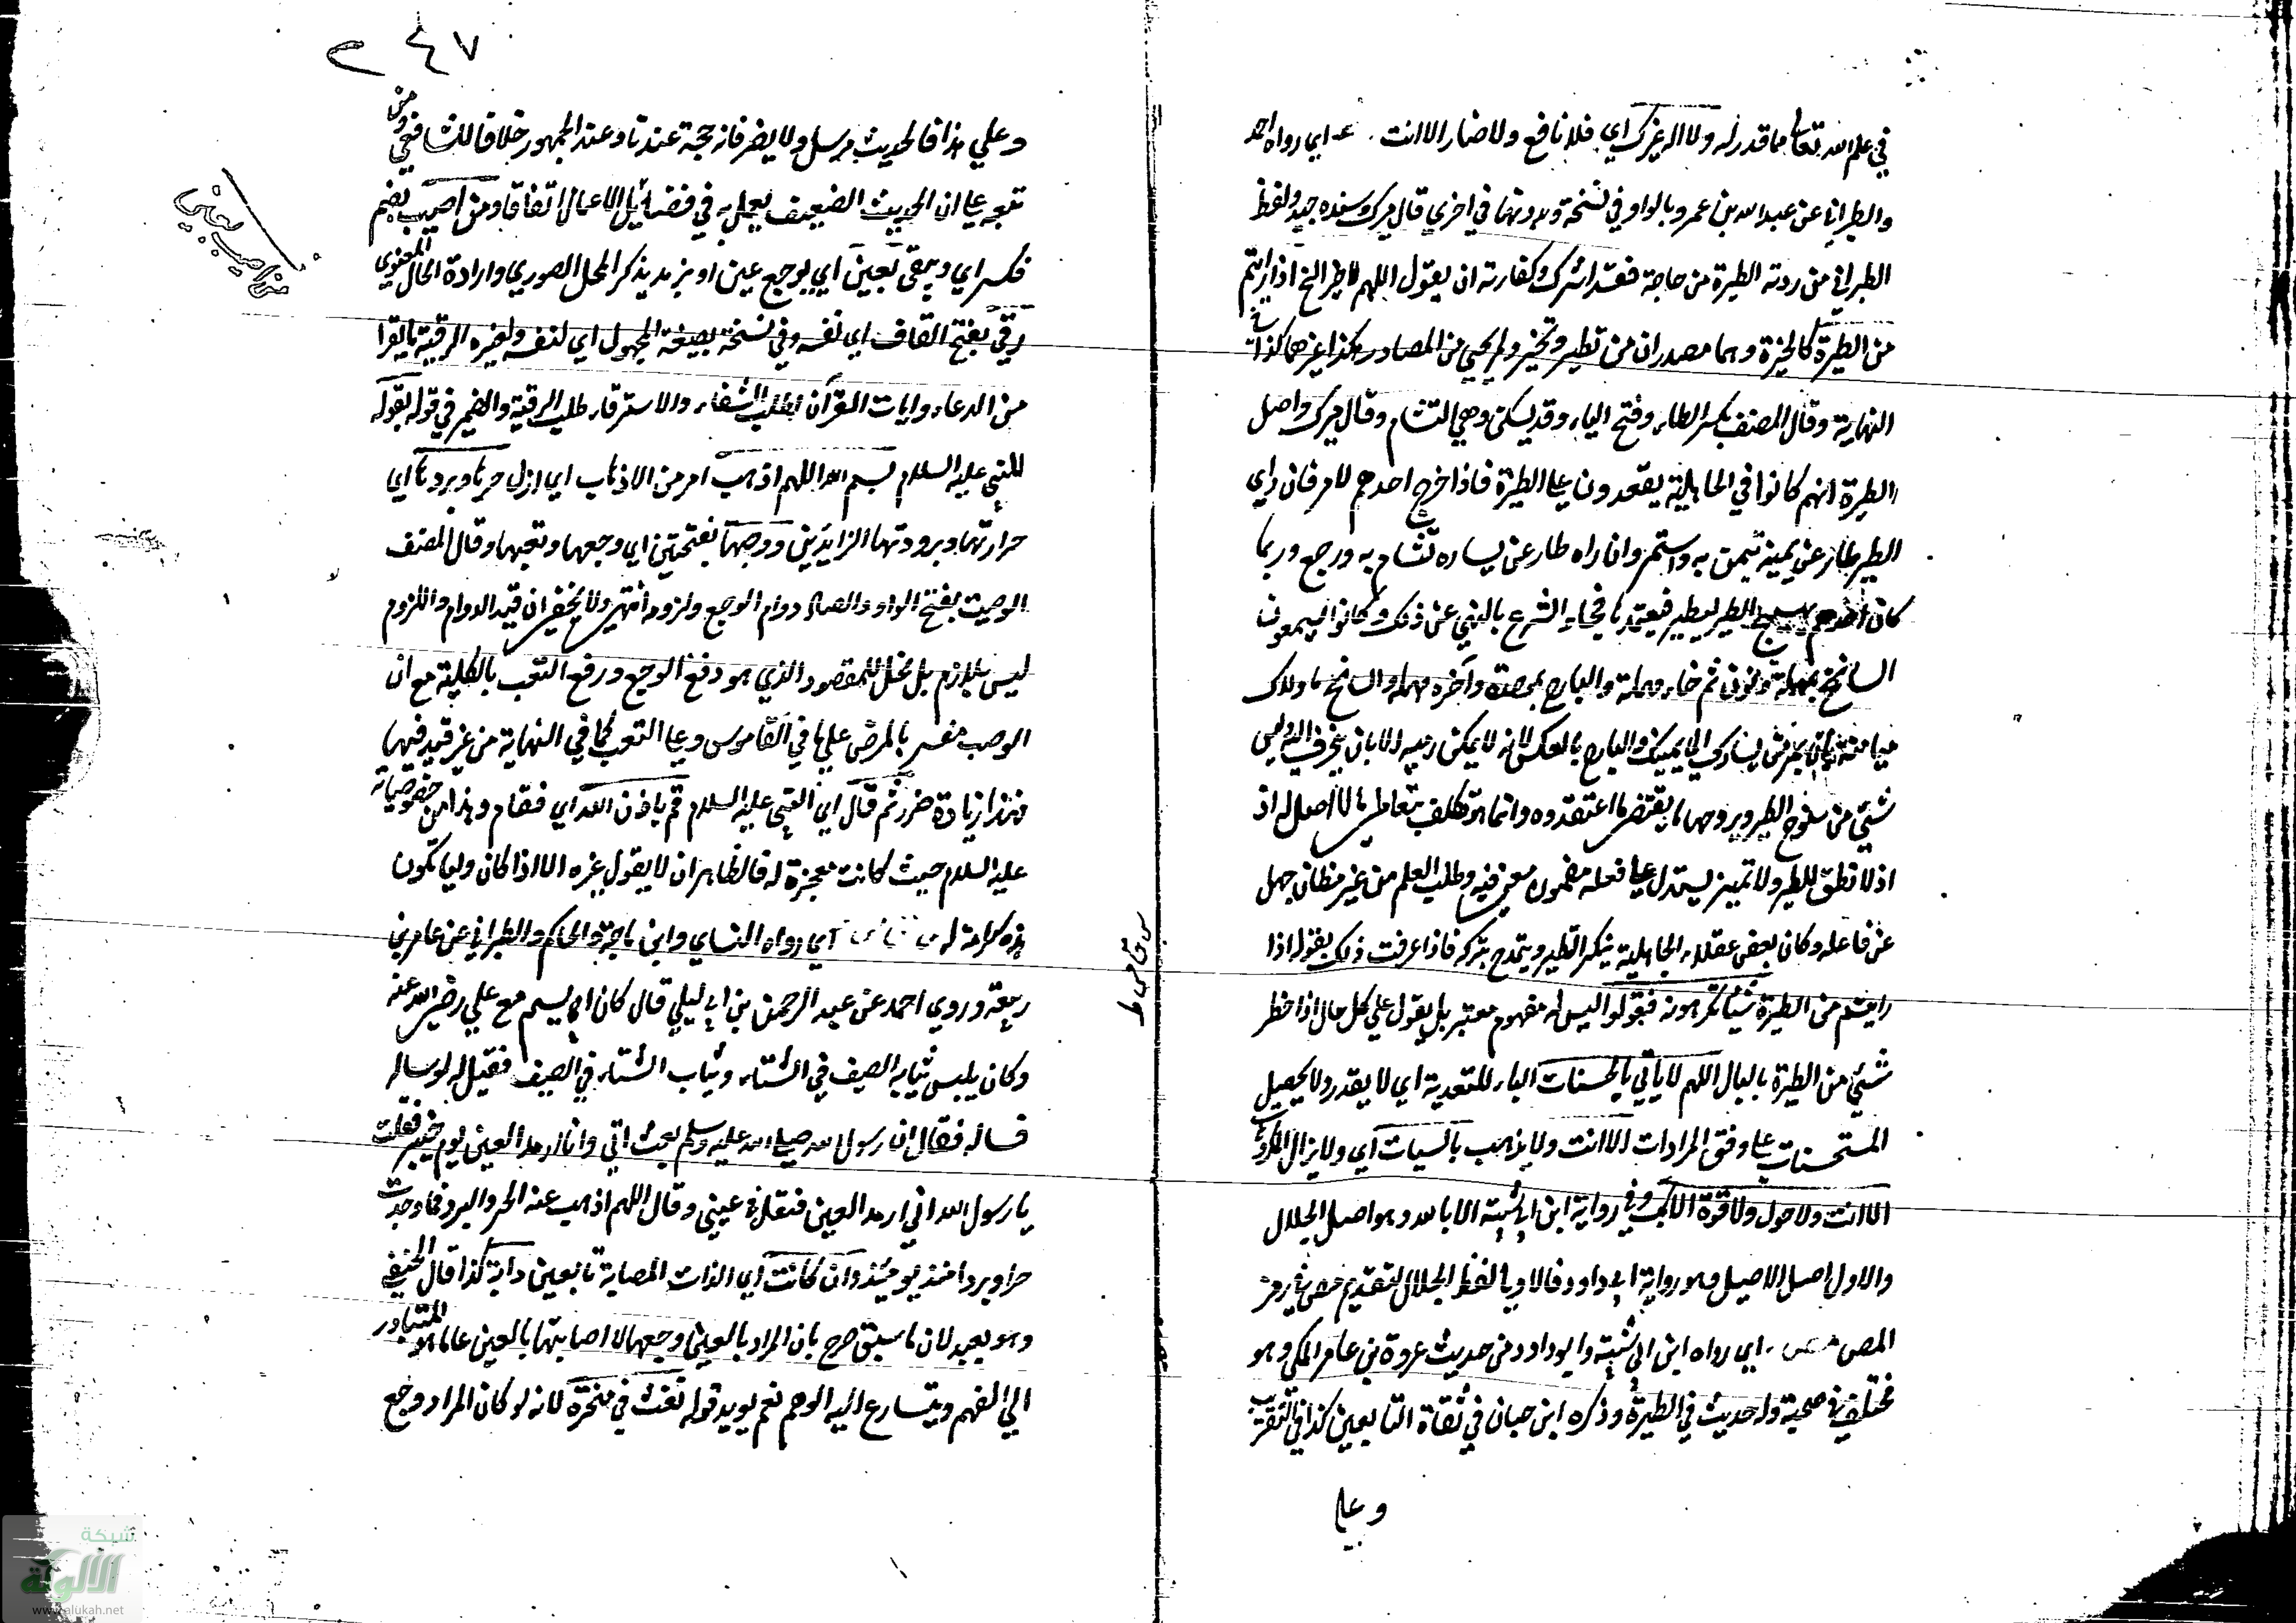 في علم الله تعالى مما قدر له ولا اله غيرك اي فلا نافع ولا ضار الا انت . اي رواه احمد
والطبراني عن عبد الله بن عمرو بالواو في نسخة وبدونها في اخرى قال ميرك وسنده جيد ولفظ
الطبراني من ردته الطيرة من حاجة فقد اشرك وكفارته ان يقول اللهم لا طير الخ اذا رايتم
من الطيرة كالخيرة وهما مصدران من تطير وتخير ولم يجئ من المصادر هكذا غيرهما كذا في
النهاية وقال المصنف بكسر الطاء وفتح الياء وقد يسكن وهي التشام وقال ميرك واصل
الطيرة انهم كانوا في الجاهلية يعتمدون على الطيرة فاذا خرج احدهم لامر فان راي
الطير طار عن يمينه تيمن به واستمر وان راه طار عن يساره تشام به ورجع وربما
كان احدهم يهيج الطير ليطير فيعتمدها فجاء الشرع بالنهي عن ذلك وكانوا يسمون
السانح بمهملة ونون ثم حاء مهملة والبارح بموحدة وآخره مهملة والسانح ما ولاك
ميامنه بان يمر من يسارك الي يمينك والبارح بالعكس لانه لا يمكن رميه الا بان ينحرف اليه وليس
شيئ من سنوح الطير وبروحها يقتضي ما اعتقدوه وانما هو تكلف بتعاطي ما لا اصل له اذ
اذ لا نطق للطير ولا تمييز يستدل على فعله مضمون معنى فيه وطلب العلم من غير مظانه جهل
من فاعله وكان بعض عقلاء الجاهلية ينكر التطير ويتمدح بتركه فاذا عرفت ذلك بقوله اذا
رايتم من الطيرة شيئا تكرهونه فقولوا ليس له مفهوم معتبر بل يقول على كل حال اذا خطر
شيئ من الطيرة بالبال اللهم لا ياتي بالحسنات الباء للتعدية اي لا يقدر ولا يحصل
المستحسنات على وفق المرادات الا انت ولا يذهب بالسيات اي ولا يزال المكروهات
الا انت ولا حول ولا قوة الا بك وفي رواية ابن ابي شيبة الا بالله وهو اصل الجلال
والاول اصل الاصيل وهو رواية ابي داود فالاولى لفظ الجلال لتقديم مص في رمز
المص مص . اي رواه ابن ابي شيبة وابو داود من حديث عروة بن عامر المكي وهو
مختلف في صحبته وله حديث في الطيرة وذكره ابن حبان في ثقاة التابعين كذا في التقريب
وعلى
س ق مس ط
٢٤٧
وعلي هذا فالحديث مرسل ولا يضر فانه حجة عندنا وعند الجمهور خلافا للشافعي ومن
تبعه على ان الحديث الضعيف يعمل به في فضائل الاعمال اتفاقا ومن اصيب بضم
فكسر اي ويبقى بعين اي بوجع عين او برمد بذكر المحل الصوري وارادة الحال المعنوي
رقي بفتح القاف اي نفسه وفي نسخة بصيغة المجهول اي لنفسه ولغيره الرقية ما يقرا
من الدعاء وايات القرآن لطلب الشفاء والاسترقاء طلب الرقية والضمير في قوله بقوله
للنبي عليه السلام بسم الله اللهم اذهب امر من الاذهاب اي ازل حرها وبردها اي
حرارتها وبرودتها الزايدتين ووصبها بفتحتين اي وجعها وتعبها وقال المصنف
الوصب بفتح الواو والصاد دوام الوجع ولزومه انتهى ولا يخفى ان قيد الدوام واللزوم
ليس بلازم بل مخل للمقصود الذي هو دفع الوجع ورفع التعب بالكلية مع ان
الوصب مفسر بالمرض على ما في القاموس وعلى التعب كما في النهاية من غير قيد فيهما
فهذا زيادة ضرر ثم قال اي النبي عليه السلام قم باذن الله اي فقام وهذا من خصوصياته
عليه السلام حيث كانت معجزة له فالظاهر ان لا يقول غيره الا اذا كان وليا تكون
هذه كرامة له اي رواه النساي وابن ماجة والحاكم والطبراني عن عامر بن
ربيعة وروي احمد عن عبد الرحمن بن ابي ليلي قال كان ابي يسمر مع علي رضي الله عنه
وكان يلبس ثياب الصيف في الشتاء وثياب الشتاء في الصيف فقيل له لو ساله
فساله فقال ان رسول الله صلى الله عليه وسلم بعث اتي وانا ارمد العين يوم خيبر فقلت
يا رسول الله اني ارمد العين فتفل في عيني وقال اللهم اذهب عنه الحر والبرد فما وجدت
حرا وبردا منذ يومئذ وان كانت اي الذات المصابة بالعين دابة كذا قال الحنفي
وهو بعيد لان ما سبق صرح بان المراد بالعين وجعها لا اصابتها بالعين على ما هو المتبادر
الي الفهم ويتسارع اليه الوهم نعم يويد قوله نفث في منخره لانه لو كان المراد وجع
من اصيب بعين